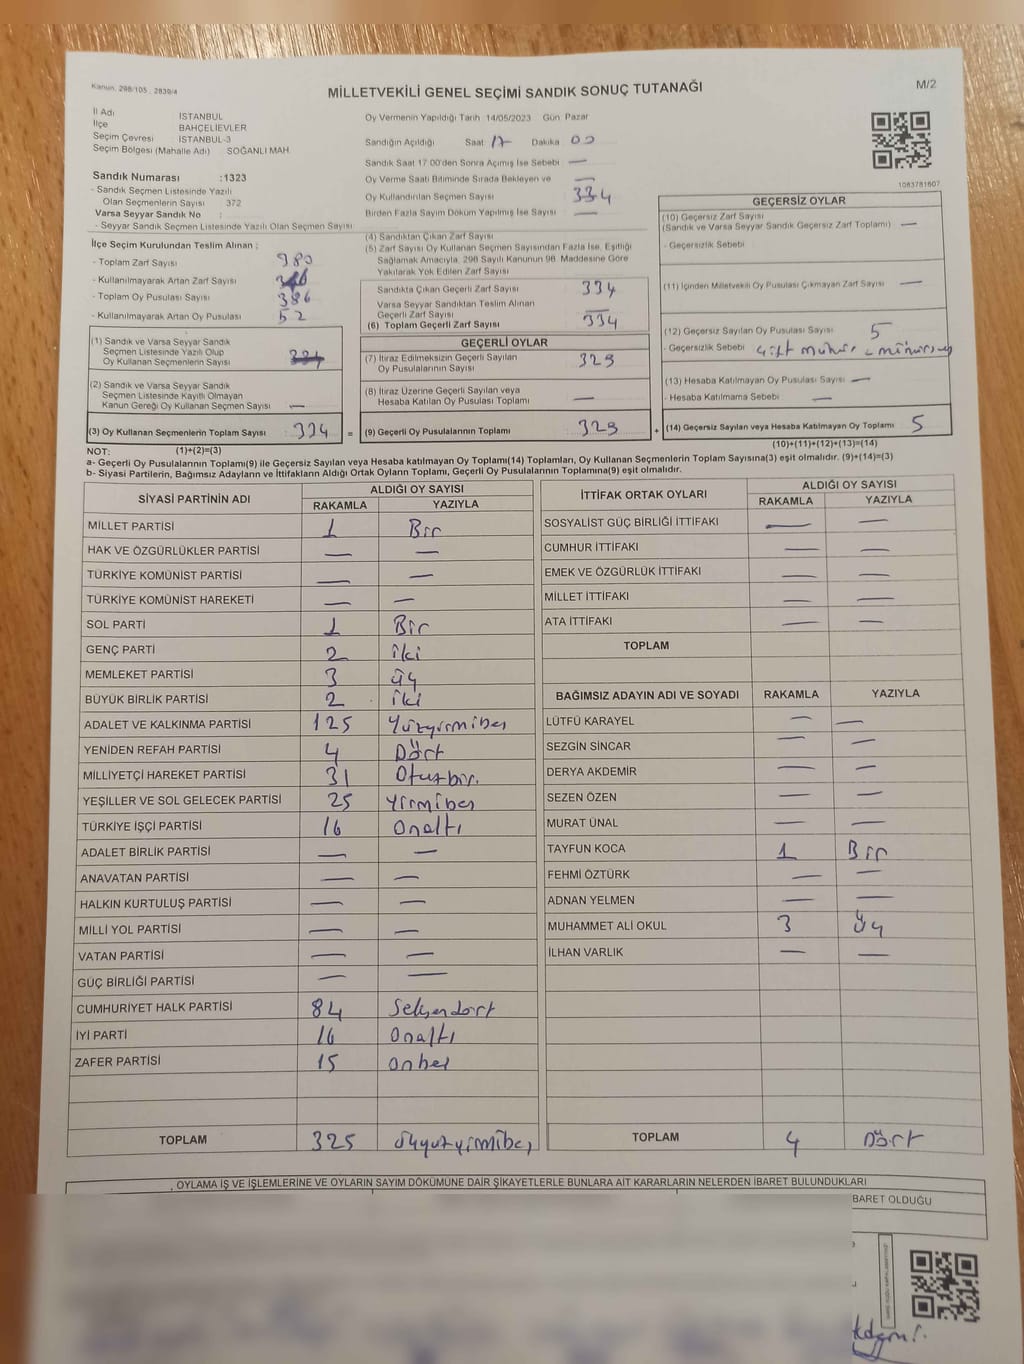 Kanun. 298/105 , 2839/4
MİLLETVEKİLİ GENEL SEÇİMİ SANDIK SONUÇ TUTANAĞI
M/2
İl Adı İSTANBUL
İlçe BAHÇELİEVLER
Seçim Çevresi İSTANBUL-3
Seçim Bölgesi (Mahalle Adı) SOĞANLI MAH.
Sandık Numarası :1323
- Sandık Seçmen Listesinde Yazılı
Olan Seçmenlerin Sayısı 372
Varsa Seyyar Sandık No :
- Seyyar Sandık Seçmen Listesinde Yazılı Olan Seçmen Sayısı
Oy Vermenin Yapıldığı Tarih 14/05/2023 Gün Pazar
Sandığın Açıldığı Saat 17 Dakika 00
Sandık Saat 17:00'den Sonra Açımış İse Sebebi —
Oy Verme Saati Bitiminde Sırada Bekleyen ve —
Oy Kullandırılan Seçmen Sayısı 334
Birden Fazla Sayım Döküm Yapılmış İse Sayısı —
1083781607
İlçe Seçim Kurulundan Teslim Alınan ;
- Toplam Zarf Sayısı 380
- Kullanılmayarak Artan Zarf Sayısı
- Toplam Oy Pusulası Sayısı 386
- Kullanılmayarak Artan Oy Pusulası 52
(1) Sandık ve Varsa Seyyar Sandık
Seçmen Listesinde Yazılı Olup
Oy Kullanan Seçmenlerin Sayısı 334
(2) Sandık ve Varsa Seyyar Sandık
Seçmen Listesinde Kayıtlı Olmayan
Kanun Gereği Oy Kullanan Seçmen Sayısı —
(3) Oy Kullanan Seçmenlerin Toplam Sayısı 334 =
(4) Sandıktan Çıkan Zarf Sayısı
(5) Zarf Sayısı Oy Kullanan Seçmen Sayısından Fazla İse, Eşitliği
Sağlamak Amacıyla, 298 Sayılı Kanunun 98. Maddesine Göre
Yakılarak Yok Edilen Zarf Sayısı
Sandıkta Çıkan Geçerli Zarf Sayısı 334
Varsa Seyyar Sandıktan Teslim Alınan
Geçerli Zarf Sayısı —
(6) Toplam Geçerli Zarf Sayısı 334
GEÇERLİ OYLAR
(7) İtiraz Edilmeksizin Geçerli Sayılan
Oy Pusulalarının Sayısı 329
(8) İtiraz Üzerine Geçerli Sayılan veya
Hesaba Katılan Oy Pusulası Toplamı —
(9) Geçerli Oy Pusulalarının Toplamı 329 +
GEÇERSİZ OYLAR
(10) Geçersiz Zarf Sayısı
(Sandık ve Varsa Seyyar Sandık Geçersiz Zarf Toplamı) —
- Geçersizlik Sebebi
(11) İçinden Milletvekili Oy Pusulası Çıkmayan Zarf Sayısı —
(12) Geçersiz Sayılan Oy Pusulası Sayısı 5
- Geçersizlik Sebebi çift mühür
(13) Hesaba Katılmayan Oy Pusulası Sayısı —
- Hesaba Katılmama Sebebi —
(14) Geçersiz Sayılan veya Hesaba Katılmayan Oy Toplamı 5
NOT: (1)+(2)=(3) (10)+(11)+(12)+(13)=(14)
a- Geçerli Oy Pusulalarının Toplamı(9) ile Geçersiz Sayılan veya Hesaba katılmayan Oy Toplamı(14) Toplamları, Oy Kullanan Seçmenlerin Toplam Sayısına(3) eşit olmalıdır. (9)+(14)=(3)
b- Siyasi Partilerin, Bağımsız Adayların ve İttifakların Aldığı Ortak Oyların Toplamı, Geçerli Oy Pusulalarının Toplamına(9) eşit olmalıdır.
SİYASİ PARTİNİN ADI ALDIĞI OY SAYISI
RAKAMLA YAZIYLA
MİLLET PARTİSİ 1 Bir
HAK VE ÖZGÜRLÜKLER PARTİSİ — —
TÜRKİYE KOMÜNİST PARTİSİ — —
TÜRKİYE KOMÜNİST HAREKETİ — —
SOL PARTİ 1 Bir
GENÇ PARTİ 2 iki
MEMLEKET PARTİSİ 3 üç
BÜYÜK BİRLİK PARTİSİ 2 iki
ADALET VE KALKINMA PARTİSİ 125 Yüzyirmibeş
YENİDEN REFAH PARTİSİ 4 Dört
MİLLİYETÇİ HAREKET PARTİSİ 31 Otuzbir.
YEŞİLLER VE SOL GELECEK PARTİSİ 25 Yirmibeş
TÜRKİYE İŞÇİ PARTİSİ 16 Onaltı
ADALET BİRLİK PARTİSİ — —
ANAVATAN PARTİSİ — —
HALKIN KURTULUŞ PARTİSİ — —
MİLLİ YOL PARTİSİ — —
VATAN PARTİSİ — —
GÜÇ BİRLİĞİ PARTİSİ — —
CUMHURİYET HALK PARTİSİ 84 Seksendört
İYİ PARTİ 16 Onaltı
ZAFER PARTİSİ 15 Onbeş
TOPLAM 325 üçyüzyirmibeş
İTTİFAK ORTAK OYLARI ALDIĞI OY SAYISI
RAKAMLA YAZIYLA
SOSYALİST GÜÇ BİRLİĞİ İTTİFAKI — —
CUMHUR İTTİFAKI — —
EMEK VE ÖZGÜRLÜK İTTİFAKI — —
MİLLET İTTİFAKI — —
ATA İTTİFAKI — —
TOPLAM
BAĞIMSIZ ADAYIN ADI VE SOYADI RAKAMLA YAZIYLA
LÜTFÜ KARAYEL — —
SEZGİN SİNCAR — —
DERYA AKDEMİR — —
SEZEN ÖZEN — —
MURAT ÜNAL — —
TAYFUN KOCA 1 Bir
FEHMİ ÖZTÜRK — —
ADNAN YELMEN — —
MUHAMMET ALİ OKUL 3 üç
İLHAN VARLIK — —
TOPLAM 4 Dört
OYLAMA İŞ VE İŞLEMLERİNE VE OYLARIN SAYIM DÖKÜMÜNE DAİR ŞİKAYETLERLE BUNLARA AİT KARARLARIN NELERDEN İBARET BULUNDUKLARI
BARET OLDUĞU